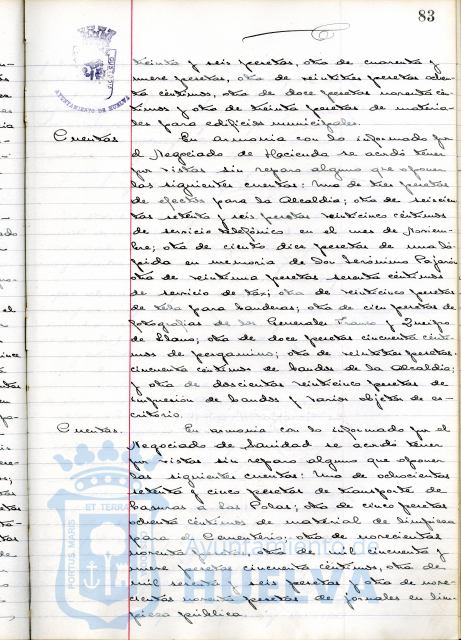 83
AYUNTAMIENTO DE HUELVA
treinta y seis pesetas, otra de cuarenta y
nueve pesetas, otra de veintitres pesetas ochen
ta céntimos, otra de doce pesetas noventa cén
timos y otra de treinta pesetas de materia-
les para edificios municipales.
Cuentas
En armonia con lo informado por
el Negociado de Hacienda se acordó tener
por vistas sin reparo alguno que oponer
las siguientes cuentas: Una de tres pesetas
de efectos para la Alcaldia; otra de seiscien
tas setenta y seis pesetas veinticinco céntimos
de servicio telefónico en el mes de Noviem-
bre; otra de ciento diez pesetas de una lá-
pida en memoria de Don Jerónimo Pajarón
otra de veintiuna pesetas sesenta céntimos
de servicio de taxi; otra de veinticinco pesetas
de tela para banderas; otra de cien pesetas de
fotografias de los Generales Franco y Queipo
de Llano; otra de doce pesetas cincuenta cénti
mos de pergamino; otra de veintitres pesetas
cincuenta céntimos de bandos de la Alcaldia;
y otra de doscientas veinticinco pesetas de
impresión de bandos y varios objetos de es-
critorio.
Cuentas.
En armonia con lo informado por el
Negociado de Sanidad se acordó tener
por vistas sin reparo alguno que oponer
las siguientes cuentas: Una de ochocientas
setenta y cinco pesetas de transporte de
basuras a las Colas; otra de cinco pesetas
ochenta céntimos de material de limpieza
para el Cementerio; otra de novecientas
noventa otra de cincuenta y
nueve pesetas cincuenta céntimos, otra de
mil sesenta y seis pesetas y otra de nove-
cientas noventa pesetas de jornales en lim-
pieza pública.
PORTUS MARIS ET TERRAE
Ayuntamiento de
HUELVA